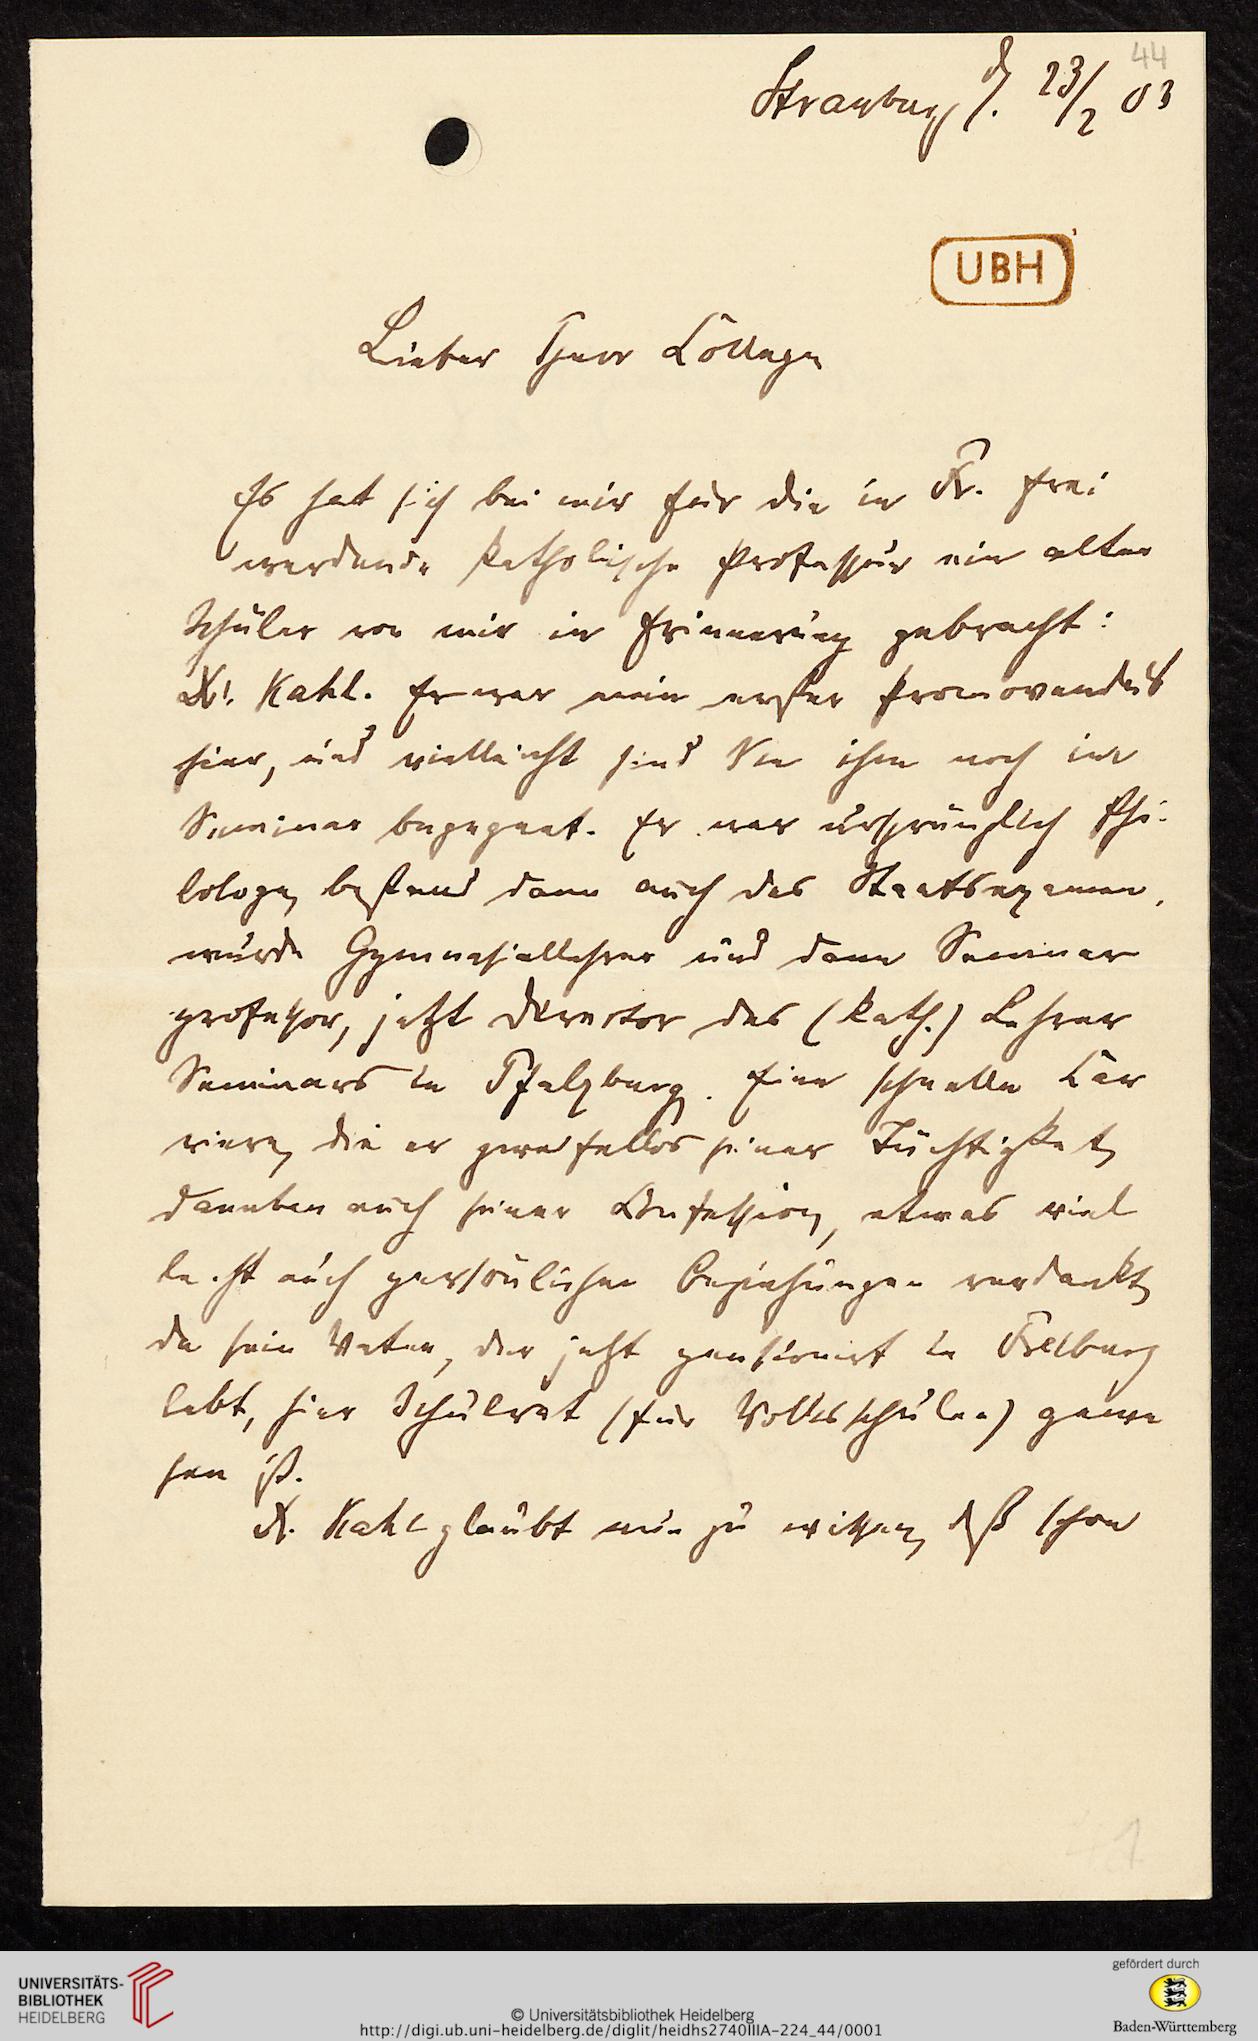 44
Strassburg d. 23/2 03
UBH
Lieber Herr College
Es hat sich bei mir für die in Fr. frei
werdende katholische Professur ein alter
Schüler von mir in Erinnerung gebracht:
Dr. Kahl. Er war mein erster Promovendus
hier, und vielleicht sind Sie ihm noch im
Seminar begegnet. Er war ursprünglich Phi-
lologe, bestand dann auch das Staatsexamen,
wurde Gymnasiallehrer und dann Seminar
professor, jetzt Director des (kath.) Lehrer
Seminars in Pfalzburg. Eine schnelle Car
riere, die er zweifellos seiner Tüchtigkeit,
daneben auch seiner Confession, etwas viel
leicht auch persönlichen Beziehungen verdankt,
da sein Vater, der jetzt pensioniert in Freiburg
lebt, hier Schulrat (für Volksschulen) gewe
sen ist.
Dr. Kahl glaubt nun zu wissen, dß schon
UNIVERSITÄTS-
BIBLIOTHEK
HEIDELBERG
© Universitätsbibliothek Heidelberg
http://digi.ub.uni-heidelberg.de/diglit/heidhs2740IIIA-224_44/0001
gefördert durch
Baden-Württemberg